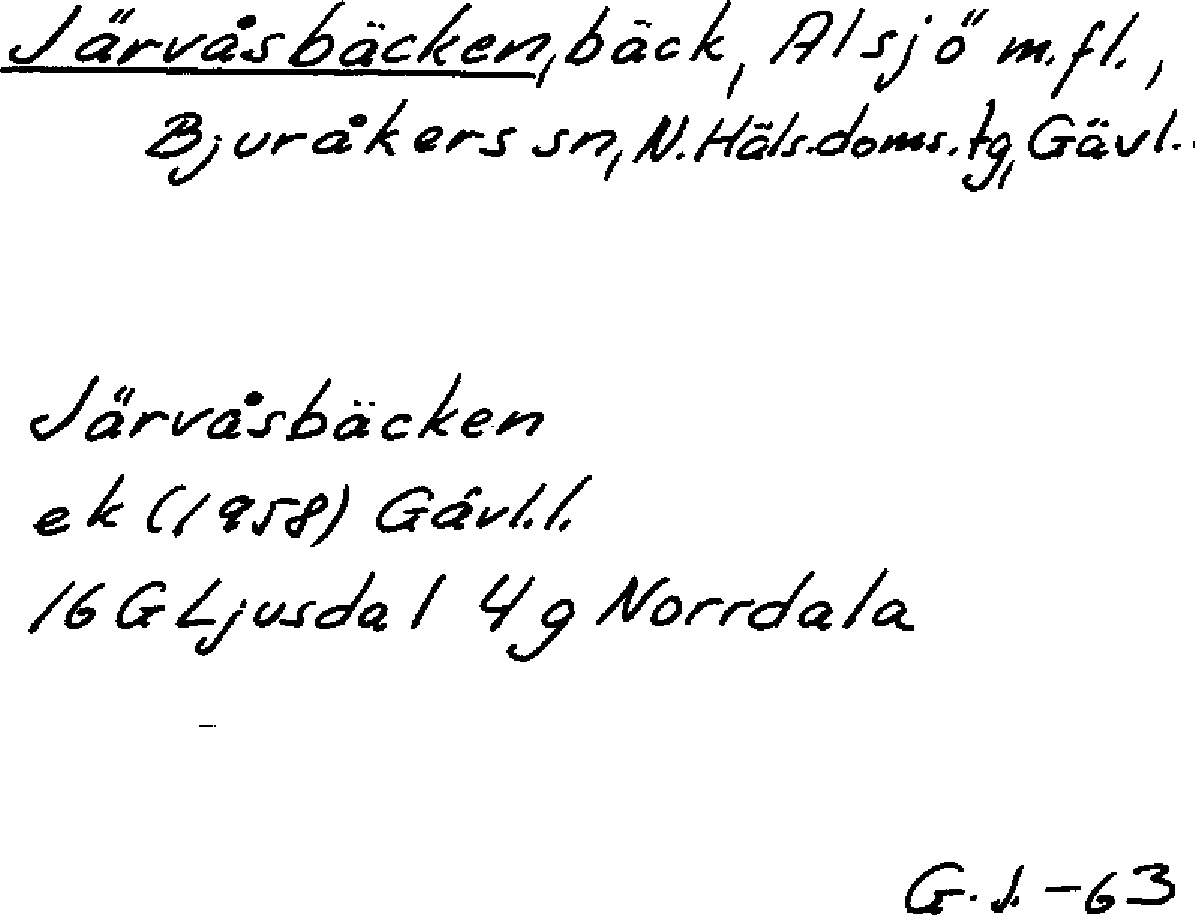 Järvåsbäcken, bäck, Alsjö m.fl.,
Bjuråkers sn, N. Häls. doms. tg, Gävl..
Järvåsbäcken
ek (1958) Gävl.l.
16 G Ljusdal 4 g Norrdala
G.J. -63